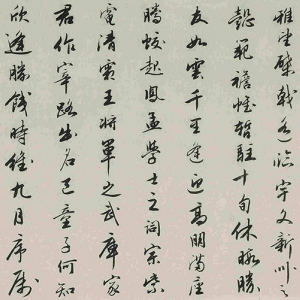 雅望棨戟遙臨宇文新州之
懿範襜帷暫駐十旬休暇勝
友如雲千里逢迎高朋滿座
騰蛟起鳳孟學士之詞宗紫
電清霜王將軍之武庫家
君作宰路出名區童子何知
躬逢勝餞時維九月序屬